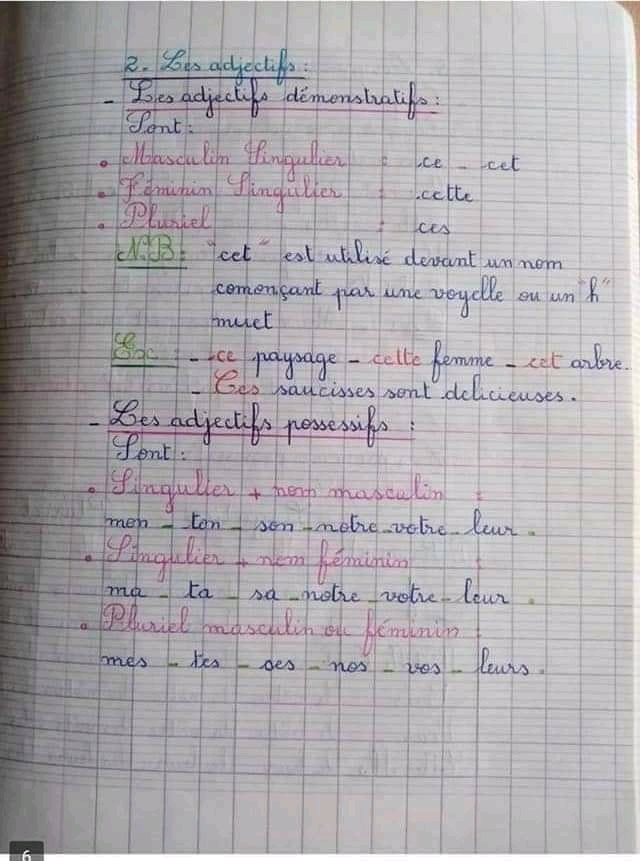 2. Les adjectifs :
- Les adjectifs démonstratifs :
Sont :
• Masculin Singulier : ce - cet
• Féminin Singulier : cette
• Pluriel : ces
N.B : "cet" est utilisé devant un nom
començant par une voyelle ou un "h"
muet
Ex : - ce paysage - cette femme - cet arbre.
- Ces saucisses sont delicieuses.
- Les adjectifs possessifs :
Sont :
• Singulier + nom masculin :
mon - ton - son - notre - votre - leur.
• Singulier + nom féminin :
ma - ta - sa - notre - votre - leur.
• Pluriel masculin ou féminin :
mes - tes - ses - nos - vos - leurs.
6